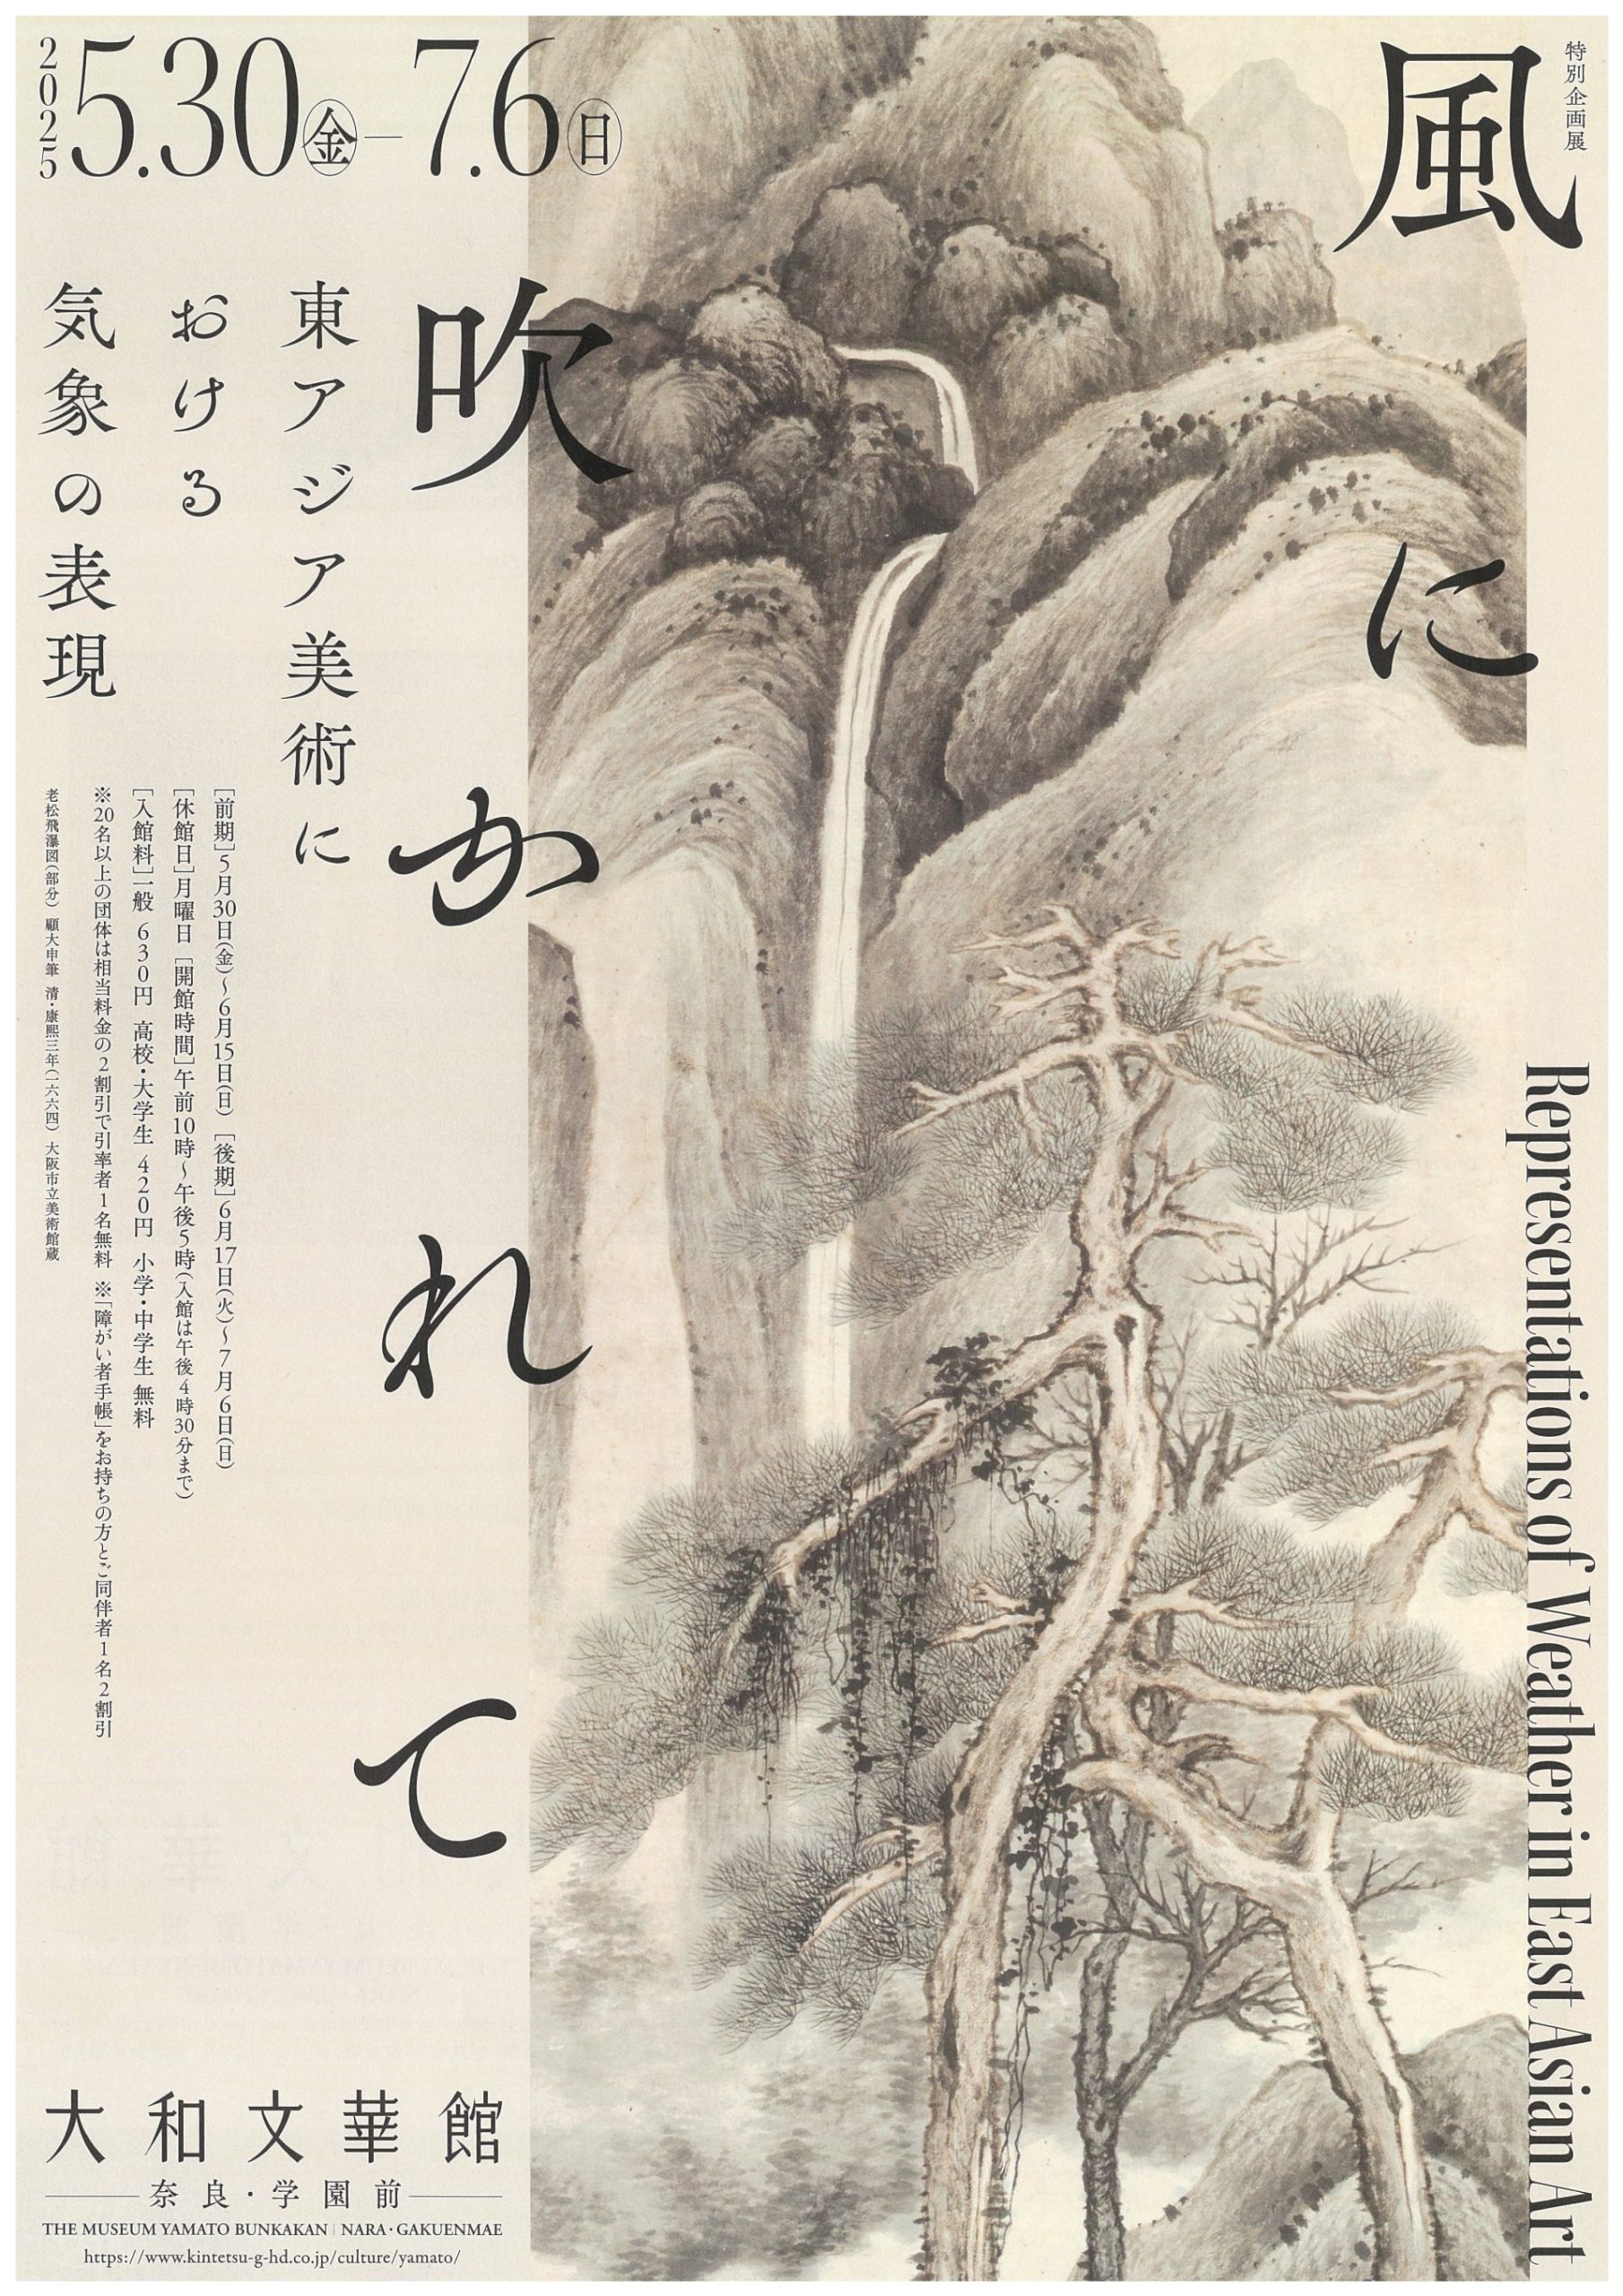 特別企画展
風に
吹かれて
東アジア美術に
おける
気象の表現
2025 5.30㊎—7.6㊐
Representations of Weather in East Asian Art
[前期]5月30日(金)~6月15日(日) [後期]6月17日(火)~7月6日(日)
[休館日]月曜日 [開館時間]午前10時~午後5時(入館は午後4時30分まで)
[入館料]一般 630円 高校・大学生 420円 小学・中学生 無料
※20名以上の団体は相当料金の2割引で引率者1名無料 ※「障がい者手帳」をお持ちの方とご同伴者1名2割引
老松飛瀑図(部分) 顧大申筆 清・康熙三年(一六六四) 大阪市立美術館蔵
大和文華館
奈良・学園前
THE MUSEUM YAMATO BUNKAKAN | NARA・GAKUENMAE
https://www.kintetsu-g-hd.co.jp/culture/yamato/